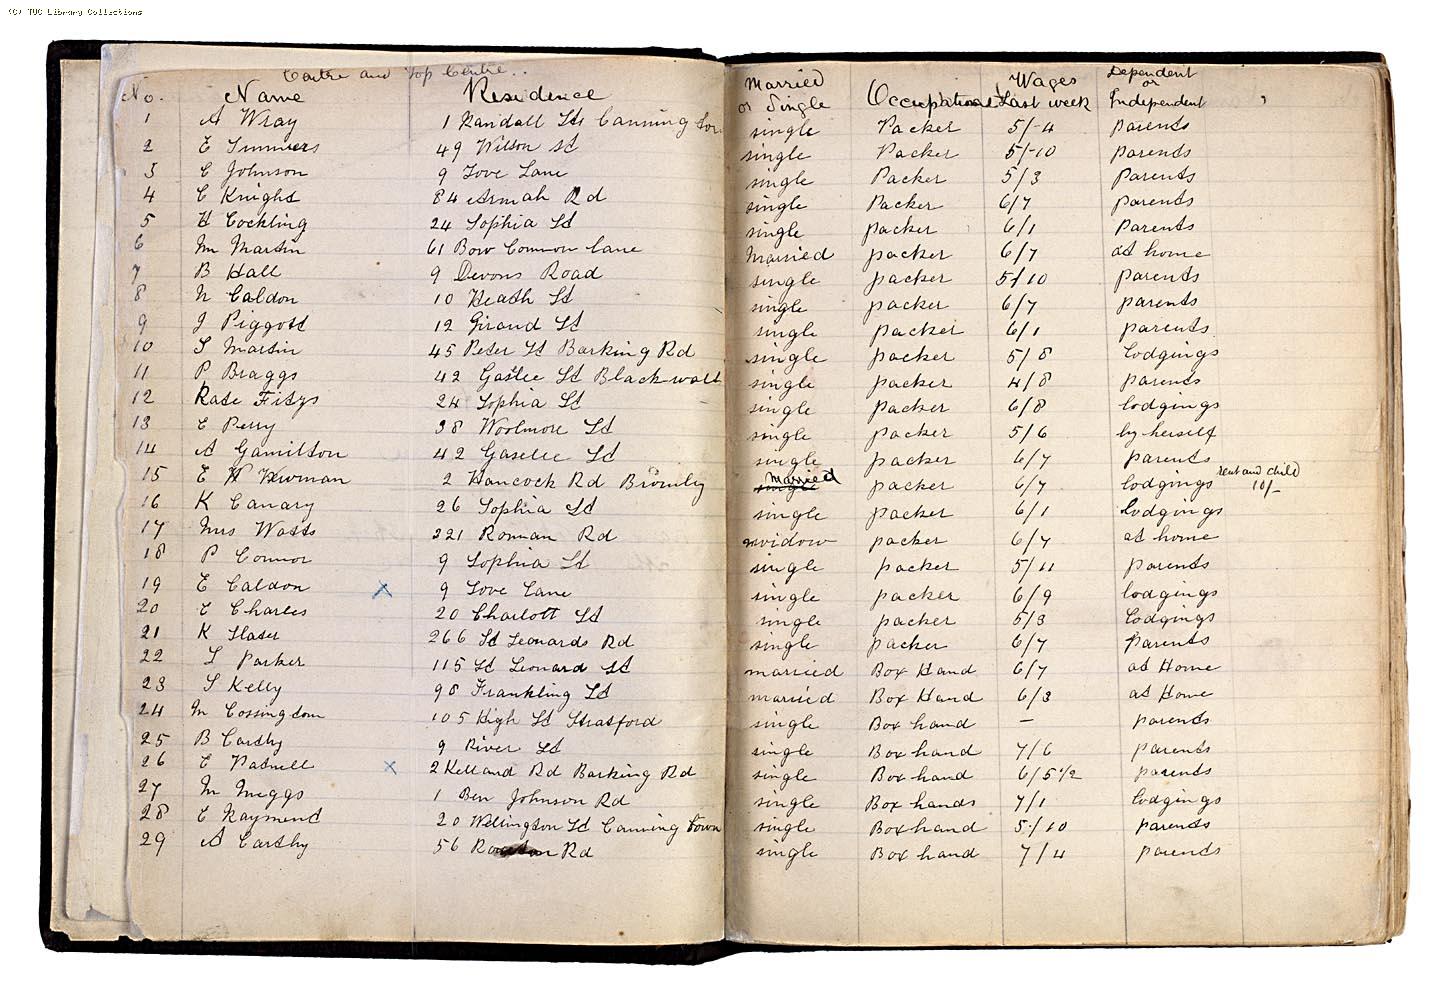 (C) TUC Library Collections
Centre and Top Centre..
No. Name Residence Married or Single Occupation Wages Last week Dependent or Independent
1 A Wray 1 Randall St Canning Town single Packer 5/-4 parents
2 E Summers 49 Wilson St single Packer 5/-10 parents
3 C Johnson 9 Love Lane single Packer 5/3 Parents
4 C Knight 84 Armah Rd single Packer 6/7 parents
5 H Cockling 24 Sophia St single packer 6/1 Parents
6 M Martin 61 Bow Common Lane Married packer 6/7 at home
7 B Hall 9 Devons Road single packer 5/10 parents
8 N Caldon 10 Heath St single packer 6/7 parents
9 J Piggott 12 Giraud St single packer 6/1 parents
10 S Martin 45 Peter St Barking Rd single packer 5/8 lodgings
11 P Braggs 42 Gaslee St Blackwall single packer 4/8 parents
12 Kate Fitzs 24 Sophia St single packer 6/8 lodgings
13 E Perry 38 Woolmore St single packer 5/6 by herself
14 A Gamilton 42 Gaselee St single packer 6/7 parents
15 E Newman 2 Hancock Rd Bromley single Married packer 6/7 lodgings rent and child 10/-
16 K Canary 26 Sophia St single packer 6/1 Lodgings
17 Mrs Watts 221 Roman Rd widow packer 6/7 at home
18 P Connor 9 Sophia St single packer 5/11 parents
19 E Caldon x 9 Love Lane single packer 6/9 lodgings
20 E Charles 20 Charlott St single packer 5/3 Lodgings
21 K Slater 266 St Leonards Rd single packer 6/7 Parents
22 L Parker 115 St Leonard St married Box Hand 6/7 at Home
23 S Kelly 98 Frankling St married Box Hand 6/3 at Home
24 M Cossingdom 105 High St Stratford single Box hand – parents
25 B Carthy 9 River St single Box hand 7/6 parents
26 E Patnell x 2 Kelland Rd Barking Rd single Box hand 6/5 1/2 parents
27 M Meggs 1 Ben Johnson Rd single Box hands 7/1 lodgings
28 E Raymend 20 Wellington St Canning Town single Box hand 5/10 parents
29 A Carthy 56 Rd single Box hand 7/4 parents